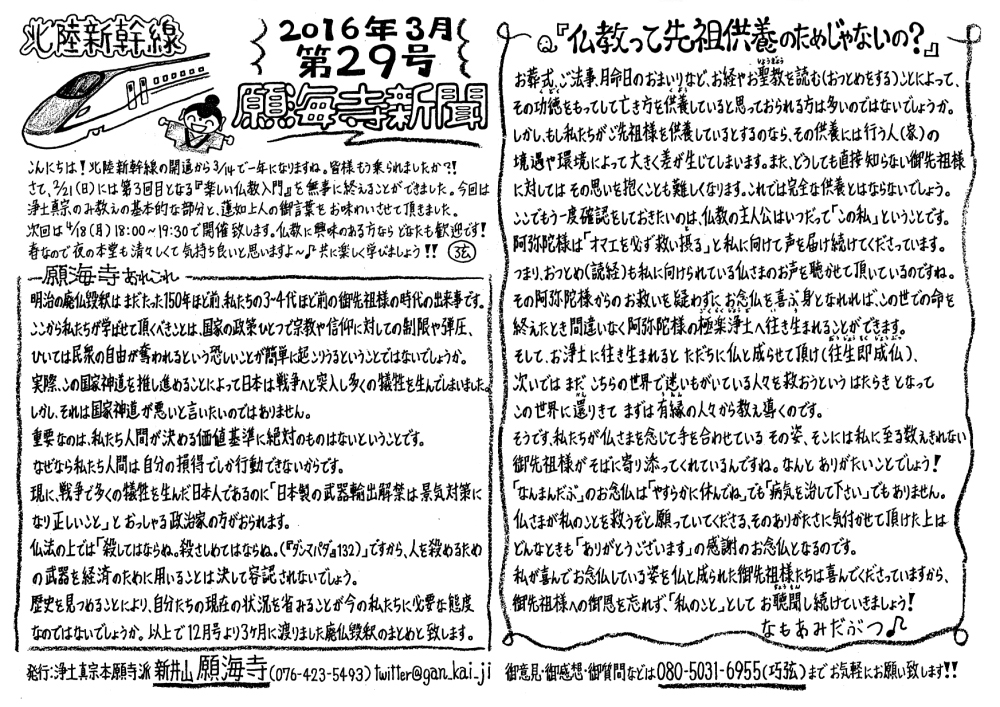 北陸新幹線
2016年3月
第29号
願海寺新聞
こんにちは！北陸新幹線の開通から3/14で一年になりますね。皆様もう乗られましたか？！
さて、2/21(日)には第3回目となる『楽しい仏教入門』を無事に終えることができました。今回は
浄土真宗のみ教えの基本的な部分と、蓮如上人の御言葉をお味わいさせて頂きました。
次回は4/18(月)18:00～19:30で開催致します。仏教に興味のある方ならどなたも歓迎です！
春なので夜の本堂も清々しくて気持ち良いと思いますよ～♪共に楽しく学びましょう！！ 弦
願海寺あれこれ
明治の廃仏毀釈はまだたった150年ほど前、私たちの3～4代ほど前の御先祖様の時代の出来事です。
ここから私たちが学ばせて頂くべきことは、国家の政策ひとつで宗教や信仰に対しての制限や弾圧、
ひいては民衆の自由が奪われるという恐しいことが簡単に起こりうるということではないでしょうか。
実際、この国家神道を推し進めることによって日本は戦争へと突入し多くの犠牲を生んでしまいました。
しかし、それは国家神道が悪いと言いたいのではありません。
重要なのは、私たち人間が決める価値基準に絶対のものはないということです。
なぜなら私たち人間は自分の損得でしか行動できないからです。
現に、戦争で多くの犠牲を生んだ日本人であるのに「日本製の武器輸出解禁は景気対策に
なり正しいこと」とおっしゃる政治家の方がおられます。
仏法の上では「殺してはならぬ。殺さしめてはならぬ。(『ダンマパダ』132)」ですから、人を殺めるため
の武器を経済のために用いることは決して容認されないでしょう。
歴史を見つめることにより、自分たちの現在の状況を省みることが今の私たちに必要な態度
なのではないでしょうか。以上で12月号より3ケ月に渡りました廃仏毀釈のまとめと致します。
『仏教って先祖供養のためじゃないの？』
お葬式、ご法事、月命日のおまいりなど、お経やお聖教を読む(おつとめをする)ことによって、
その功徳をもってして亡き方を供養していると思っておられる方は多いのではないでしょうか。
しかし、もし私たちがご先祖様を供養しているとするのなら、その供養には行う人(家)の
境遇や環境によって大きく差が生じてしまいます。また、どうしても直接知らない御先祖様
に対してはその思いを抱くことも難しくなります。これでは完全な供養とはならないでしょう。
ここでもう一度確認をしておきたいのは、仏教の主人公はいつだって「この私」ということです。
阿弥陀様は「オマエを必ず救い摂る」と私に向けて声を届け続けてくださっています。
つまり、おつとめ(読経)も私に向けられている仏さまのお声を聴かせて頂いているのですね。
その阿弥陀様からのお救いを疑わずにお念仏を喜ぶ身となれれば、この世での命を
終えたとき間違いなく阿弥陀様の極楽浄土へ往き生まれることができます。
そして、お浄土に往き生まれるとただちに仏と成らせて頂け(往生即成仏)、
次いではまだこちらの世界で迷いもがいている人々を救おうというはたらきとなって
この世界に還りきてまずは有縁の人々から教え導くのです。
そうです、私たちが仏さまを念じて手を合わせているその姿、そこには私に至る数えきれない
御先祖様がそばに寄り添ってくれているんですね。なんとありがたいことでしょう！
「なんまんだぶ」のお念仏は「やすらかに休んでね」でも「病気を治して下さい」でもありません。
仏さまが私のことを救うぞと願っていてくださる、そのありがたさに気付かせて頂けた上は
どんなときも「ありがとうございます」の感謝のお念仏となるのです。
私が喜んでお念仏している姿を仏と成られた御先祖様たちは喜んでくださっていますから、
御先祖様への御恩を忘れず、「私のこと」としてお聴聞し続けていきましょう！
なもあみだぶつ♪
発行:浄土真宗本願寺派 新井山 願海寺(076-423-5493) twitter@gan_kai_ji
御意見・御感想・御質問などは080-5031-6955(巧弦)までお気軽にお願い致します！！